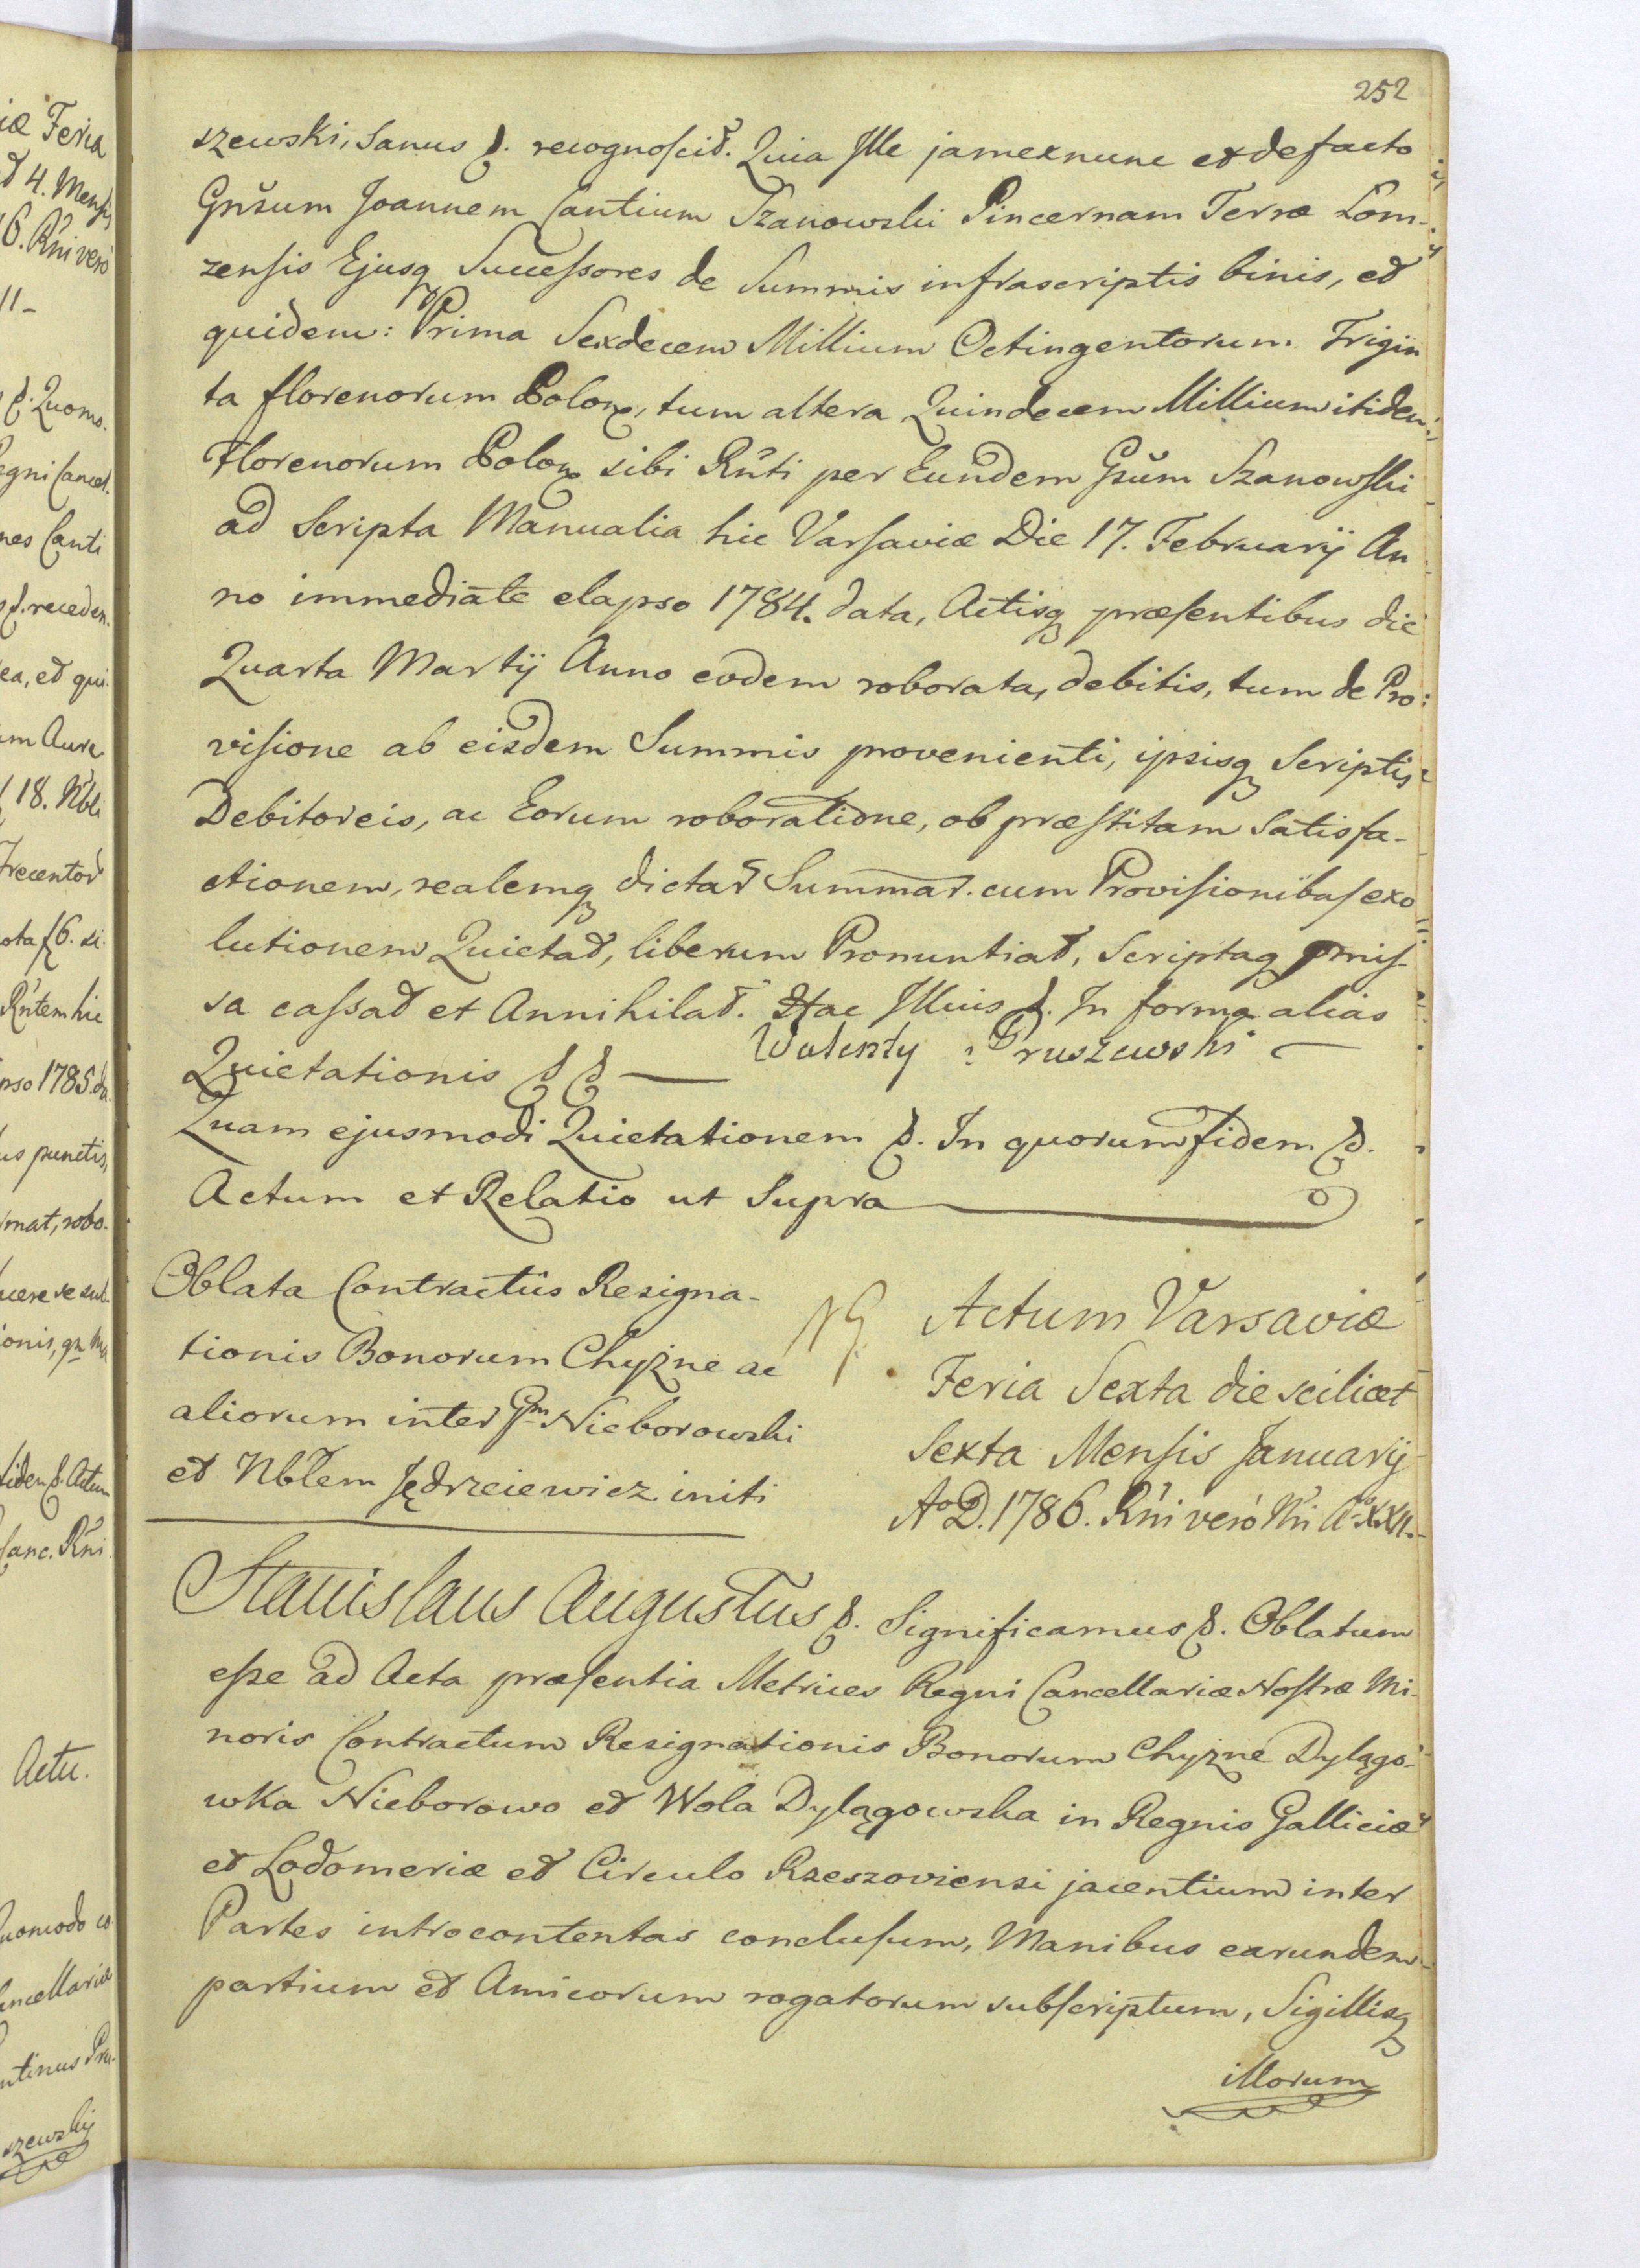 252
szewski, Sanus &. recognoscit. Quia Ille jamexnunc et defacto
Gnsum Joannem Cantium Szanowski Pincernam Terræ Lom-
zensis Ejusq Successores de Summis infrascriptis binis, et
quidem: Prima Sexdecem Millium Octingentorum Trigin
ta florenorum Polon, tum altera Quindecem Millium itidem
Florenorum Polon sibi Rnti per Eundem Gsum Szanowski
ad Scripta Manualia hic Varsaviæ Die 17. Februarij An
no immediate elapso 1784. data, Actisq præsentibus die
Quarta Martij Anno eodem roborata, debitis, tum de Pro:
visione ab eisdem Summis provenienti, ipsisq Scriptis
Debitoreis, ac Eorum roboratione, ob præstitam Satisfa-
ctionem, realemq dictar Summar. cum Provisionibus exo
lutionem Quietat, liberum Pronuntiat, Scriptaq pmis-
sa cassat et Annihilat. Hac Illius &. In forma alias
Quietationis && — Walenty Pruszewski —
Quam ejusmodi Quietationem &. In quorum fidem &.
Actum et Relatio ut Supra
Oblata Contractus Resigna-
tionis Bonorum Chyzne ac
aliorum inter Gm Nieborowski
et Nblem Jędrzeiewicz initi
NG.
Actum Varsaviæ
Feria Sexta die scilicet
Sexta Mensis Januarij
Ao D. 1786. Rni vero Nri Ao XXII.
Stanislaus Augustus &. Significamus &. Oblatum
esse ad Acta præsentia Metrices Regni Cancellariæ Nostræ Mi-
noris Contractum Resignationis Bonorum Chyzne Dylągo-
wka Nieborowo et Wola Dylągowska in Regnis Galliciæ
et Lodomeriæ et Circulo Rzeszoviensi jacentium inter
Partes introcontentas conclusum, Manibus earundem
partium et Amicorum rogatorum subscriptum, Sigillisq
illorum